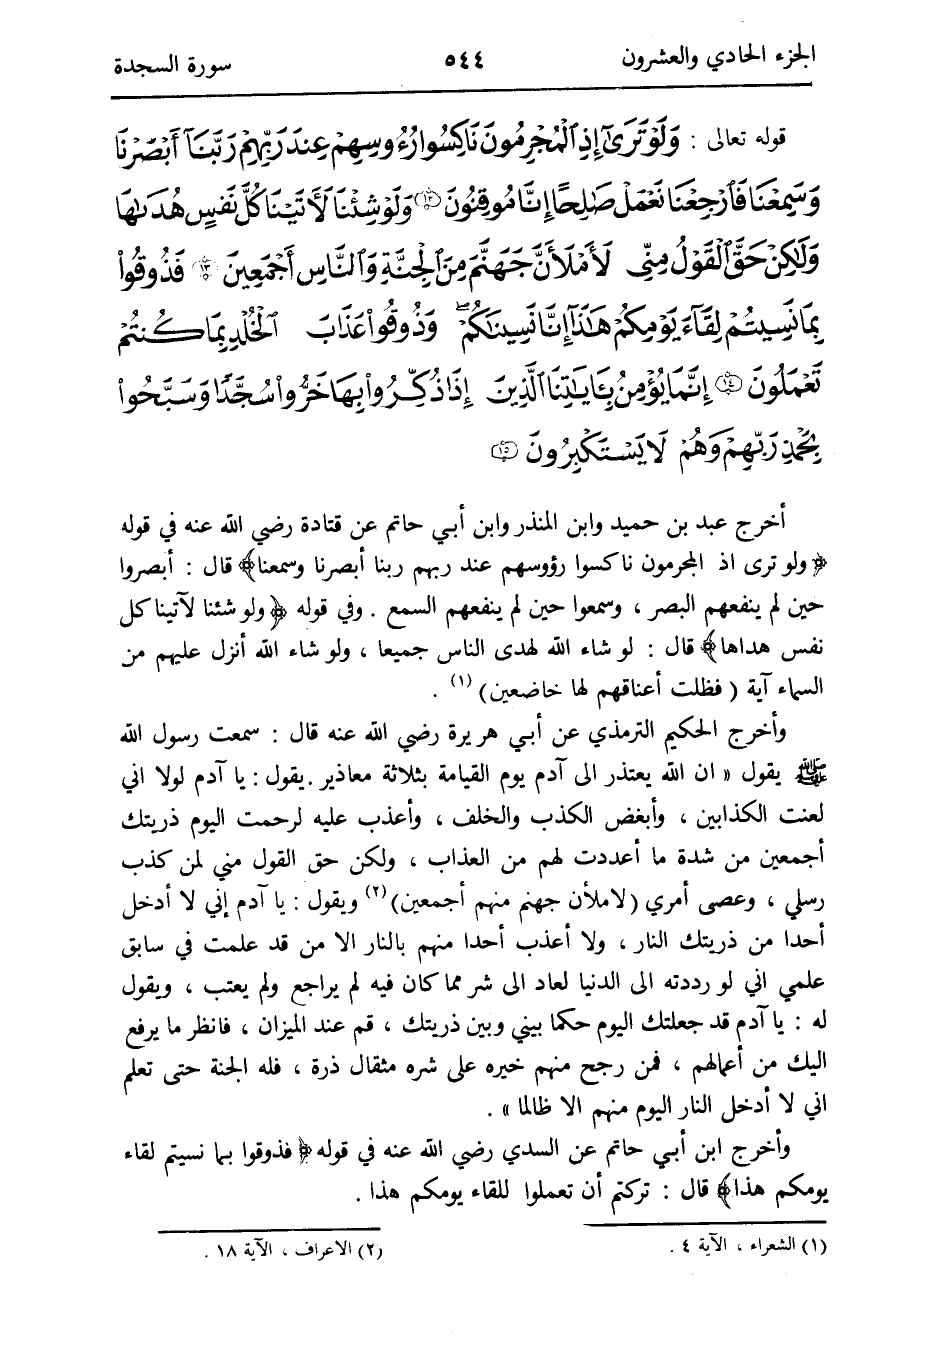 الجزء الحادي والعشرون ٥٤٤ سورة السجدة
قوله تعالى : وَلَوْ تَرَىٰٓ إِذِ ٱلْمُجْرِمُونَ نَاكِسُوا۟ رُءُوسِهِمْ عِندَ رَبِّهِمْ رَبَّنَآ أَبْصَرْنَا
وَسَمِعْنَا فَٱرْجِعْنَا نَعْمَلْ صَٰلِحًا إِنَّا مُوقِنُونَ ﴿١٢﴾ وَلَوْ شِئْنَا لَأَتَيْنَا كُلَّ نَفْسٍ هُدَىٰهَا
وَلَٰكِنْ حَقَّ ٱلْقَوْلُ مِنِّى لَأَمْلَأَنَّ جَهَنَّمَ مِنَ ٱلْجِنَّةِ وَٱلنَّاسِ أَجْمَعِينَ ﴿١٣﴾ فَذُوقُوا۟
بِمَا نَسِيتُمْ لِقَآءَ يَوْمِكُمْ هَٰذَآ إِنَّا نَسِينَٰكُمْ ۖ وَذُوقُوا۟ عَذَابَ ٱلْخُلْدِ بِمَا كُنتُمْ
تَعْمَلُونَ ﴿١٤﴾ إِنَّمَا يُؤْمِنُ بِـَٔايَٰتِنَا ٱلَّذِينَ إِذَا ذُكِّرُوا۟ بِهَا خَرُّوا۟ سُجَّدًا وَسَبَّحُوا۟
بِحَمْدِ رَبِّهِمْ وَهُمْ لَا يَسْتَكْبِرُونَ ﴿١٥﴾
أخرج عبد بن حميد وابن المنذر وابن أبي حاتم عن قتادة رضي الله عنه في قوله
﴿ولو ترى اذ المجرمون ناكسوا رؤوسهم عند ربهم ربنا أبصرنا وسمعنا﴾ قال : أبصروا
حين لم ينفعهم البصر ، وسمعوا حين لم ينفعهم السمع . وفي قوله ﴿ولو شئنا لآتينا كل
نفس هداها﴾ قال : لو شاء الله لهدى الناس جميعا ، ولو شاء الله أنزل عليهم من
السماء آية ( فظلت أعناقهم لها خاضعين) (١) .
وأخرج الحكيم الترمذي عن أبي هريرة رضي الله عنه قال : سمعت رسول الله
ﷺ يقول « ان الله يعتذر الى آدم يوم القيامة بثلاثة معاذير . يقول : يا آدم لولا اني
لعنت الكذابين ، وأبغض الكذب والخلف ، وأعذب عليه لرحمت اليوم ذريتك
أجمعين من شدة ما أعددت لهم من العذاب ، ولكن حق القول مني لمن كذب
رسلي ، وعصى أمري (لاملأن جهنم منهم أجمعين) (٢) ويقول : يا آدم إني لا أدخل
أحدا من ذريتك النار ، ولا أعذب أحدا منهم بالنار الا من قد علمت في سابق
علمي اني لو رددته الى الدنيا لعاد الى شر مما كان فيه لم يراجع ولم يعتب ، ويقول
له : يا آدم قد جعلتك اليوم حكما بيني وبين ذريتك ، قم عند الميزان ، فانظر ما يرفع
اليك من أعمالهم ، فمن رجح منهم خيره على شره مثقال ذرة ، فله الجنة حتى تعلم
اني لا أدخل النار اليوم منهم الا ظالما » .
وأخرج ابن أبي حاتم عن السدي رضي الله عنه في قوله ﴿فذوقوا بما نسيتم لقاء
يومكم هذا﴾ قال : تركتم أن تعملوا للقاء يومكم هذا .
(١) الشعراء ، الآية ٤ . (٢) الاعراف ، الآية ١٨ .